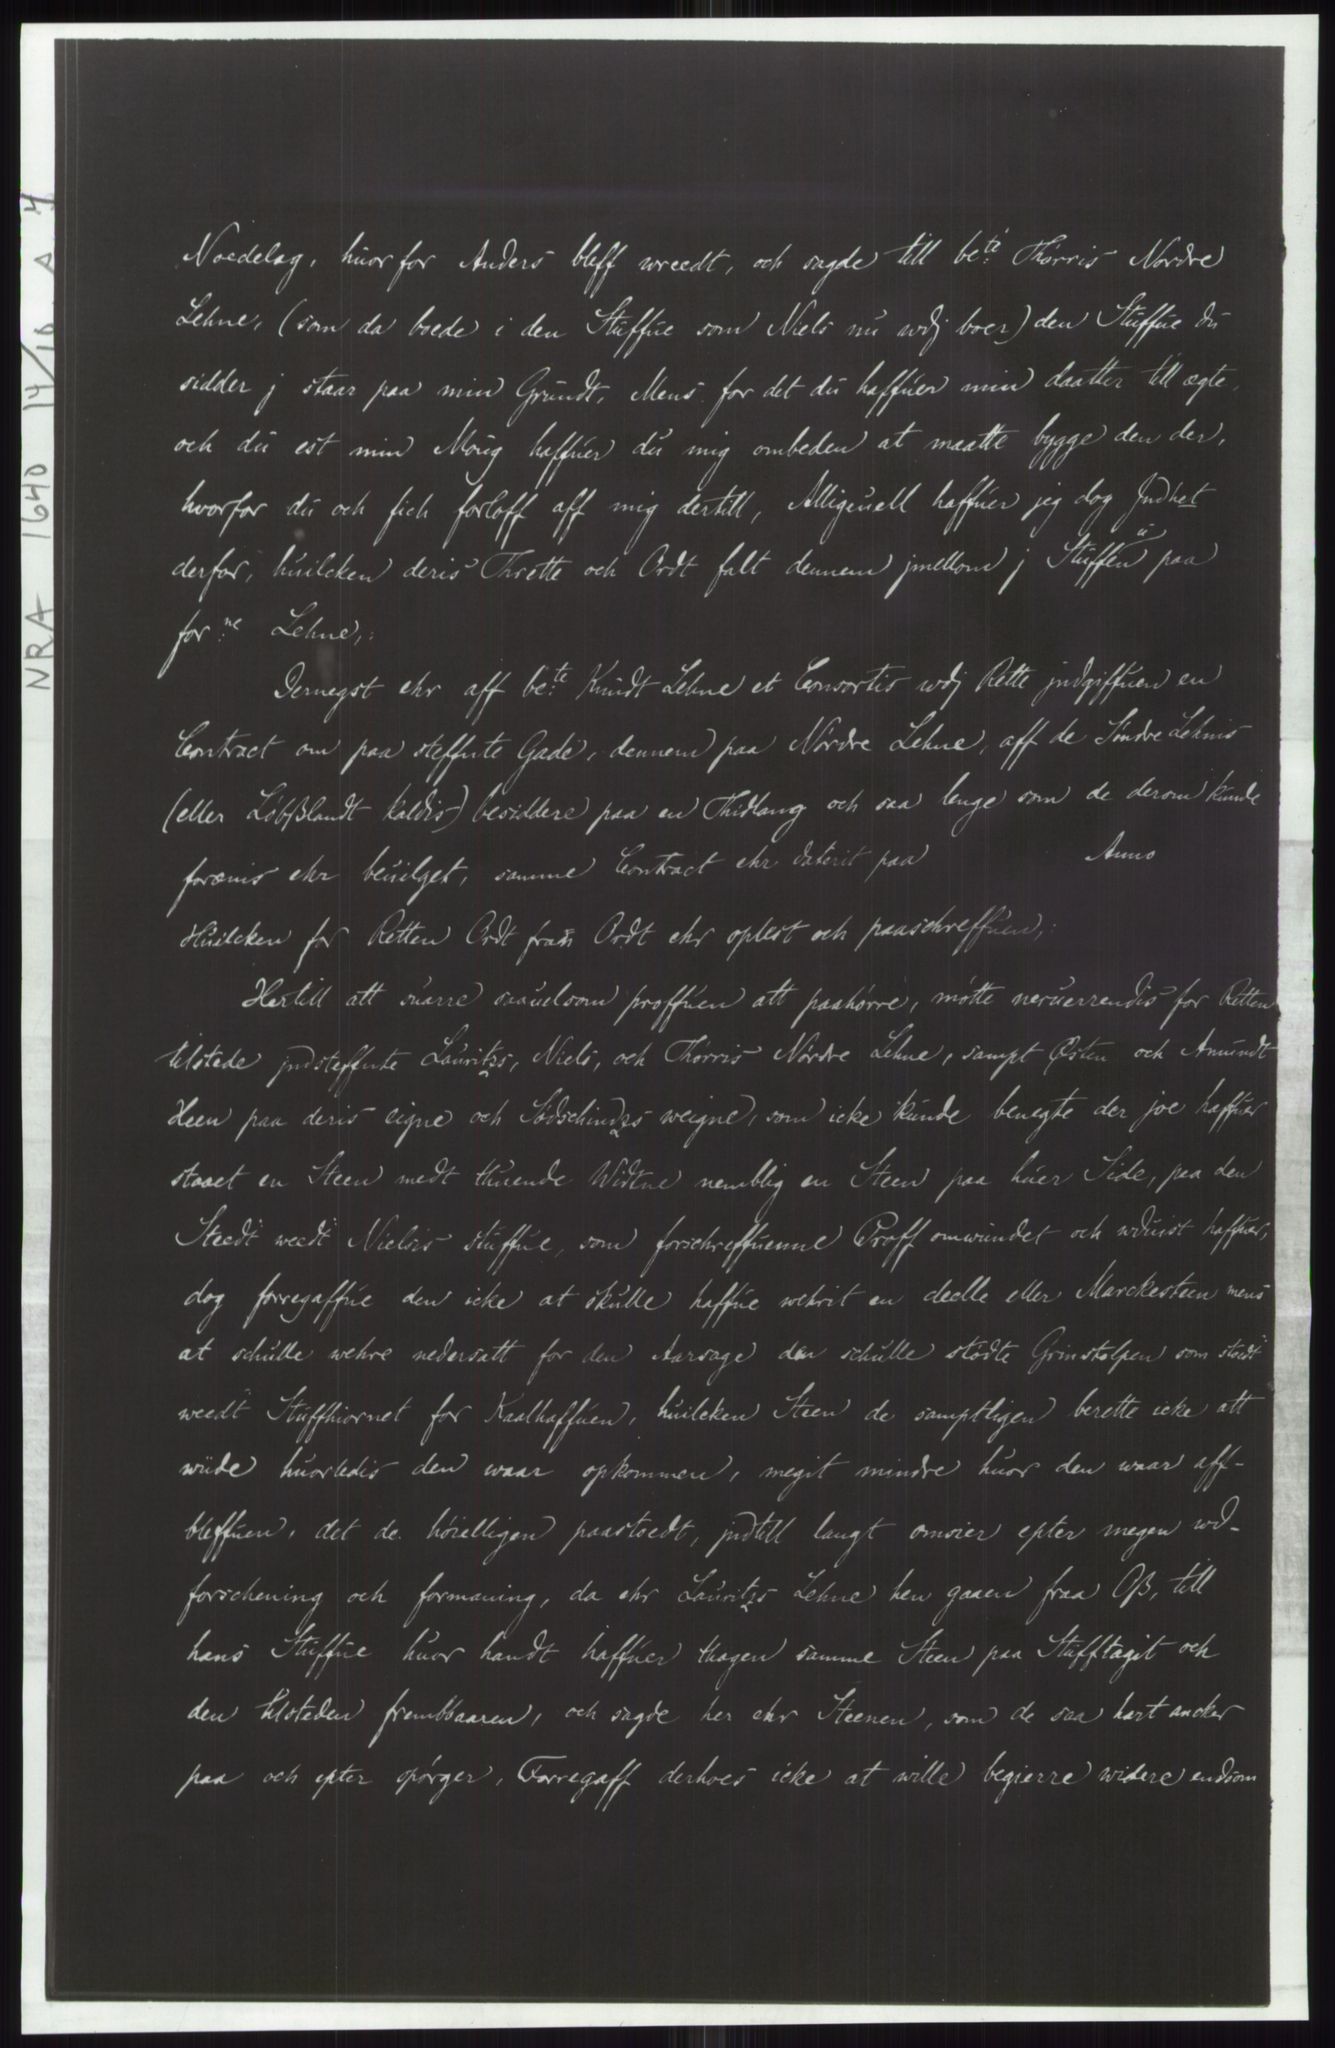 NRA 1640 14/10 A 4
Noedelag, huor for Anders bleff wreedt, och sagde till be:te Thørris Nordre
Lehne, (som da boede i den Stuffue som Niels nu wdj boer) den Stuffue du
sidder j staar paa min Grundt, Mens for det du haffuer min daatter till ægte,
och du est min Moug haffuer du mig ombeden at maatte bygge den der,
hvorfor du och fich forloff aff mig dertill, Alligeuell haffuer jeg dog Jndhet
derfor, huilcken deris Thrette och Ordt falt dennem jmellom j Stuffen paa
for:ne Lehne,:
Dernegst ehr aff be:te Knudt Lehne et Consortis wdj Rette jndgiffuen en
Contract om paa steffnte Gade, dennem paa Nordre Lehne, aff de Søndre Lehnis
(eller Løbßlandt kaldis) besiddere paa en Thidlang och saa lenge som de derom kunde
forænis ehr beuilget, samme Contract ehr daterit paa Anno
Huilcken for Retten Ordt fran Ordt ehr oplest och paaschreffuen,:
Hertill att suarre saauelsom proffuen att paahørre, møtte neruerrendis for Retten
tilstede jndsteffnte Lauritzs, Niels, och Thørris Nordre Lehne, sampt Østen och Amundt
Heen paa deris eigne och Sødschindzs weigne, som icke kunde benegte der joe haffuer
staaet en Steen medt thuende Widtne nemblig en Steen paa huer Side, paa den
Stedt weedt Nielsis stuffue, som forschreffuenne Proff omwundet och wduist haffuer,
dog forregaffue den icke at skulle haffue wehrit en deelle eller Marckesteen mens
at schulle wehre nedersatt for den Aarsage den schulle stødte Grinstolpen som stoedt
weedt Stuffhiornet for Kaalhaffuen, huilcken Steen de samptligen berette icke att
wiide huorledis den waar opkommen, megit mindre huor den waar aff-
bleffuen, det de høielligen paastoedt, jndtill langt omsier epter megen wd-
forschening och formaning, da ehr Lauritzs Lehne hen gaaen fraa Oß, till
hans Stuffue huor handt haffuer thagen samme Steen paa Stufftagit och
den tilsteden frembbaaren, och sagde her ehr Steenen, som de saa hart ancker
paa och epter spørger, Forregaff derhoes icke at wille begierre widere endsom